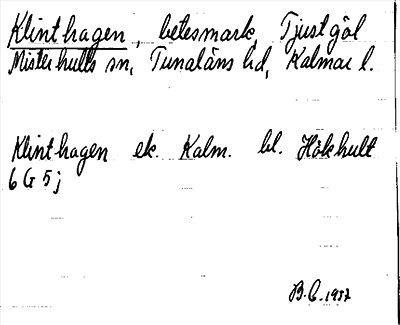 Klinthagen, betesmark, Tjustgöl
Misterhults sn, Tunaläns hd, Kalmar l.
Klinthagen ek. Kalm. bl. Hökhult
6 G 5 j
B.C. 1937